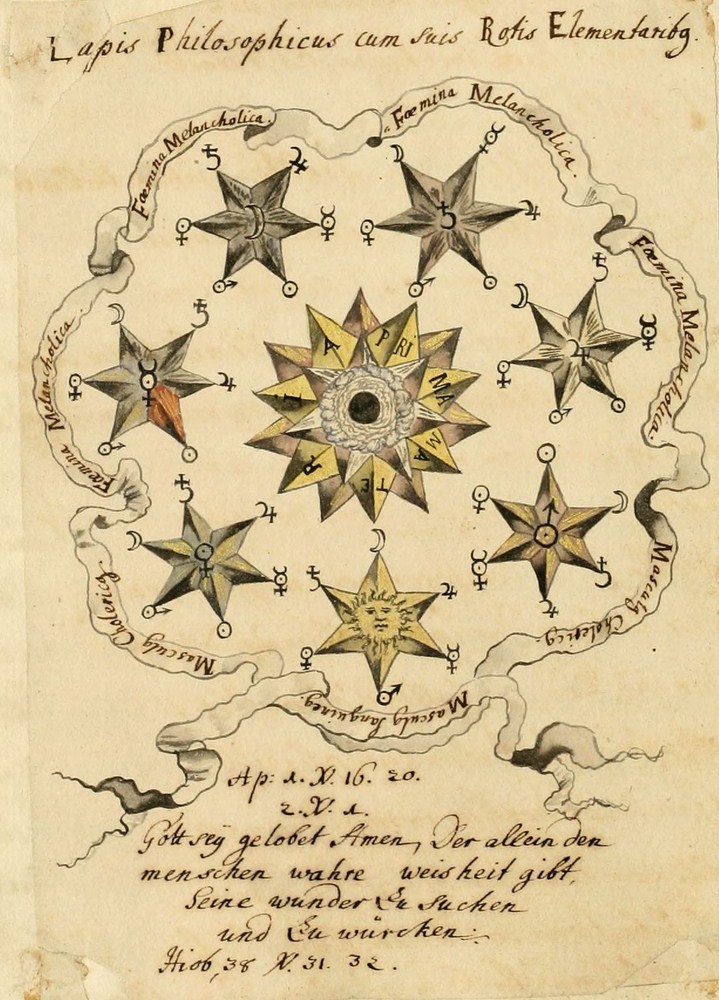 Lapis Philosophicus cum suis Rotis Elementaribg.
Fœmina Melancholica.
Fœmina Melancholica.
Fœmina Melancholica.
Fœmina Melancholica.
PRIMA MATERIA
Masculg Cholericg.
Masculg Cholericg.
Masculg Sangvineg.
Ap: 1. V. 16. 20.
2. V. 1.
Gott seÿ gelobet Amen, Der allein den
menschen wahre weisheit gibt,
Seine wunder Zu suchen
und Zu würcken:
Hiob, 38 V. 31. 32.